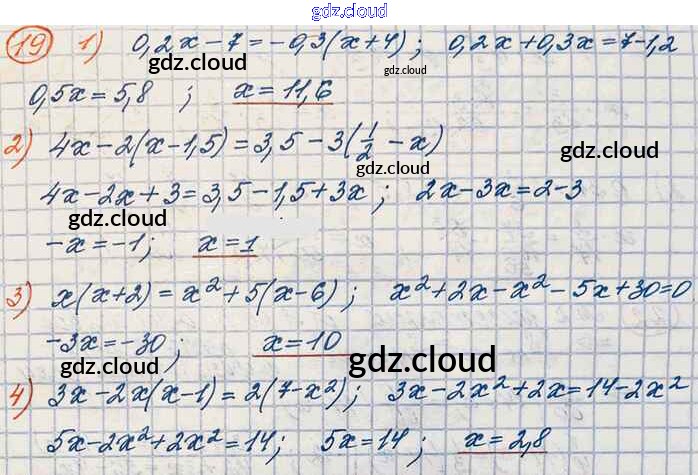 gdz.cloud
19 1) 0,2x-7=-0,3(x+4); 0,2x+0,3x=7-1,2
gdz.cloud gdz.cloud
0,5x=5,8; x=11,6
2) 4x-2(x-1,5)=3,5-3(1/2-x)
gdz.cloud
4x-2x+3=3,5-1,5+3x; 2x-3x=2-3
gdz.cloud gdz.cloud
-x=-1; x=1
3) x(x+2)=x²+5(x-6); x²+2x-x²-5x+30=0
gdz.cloud gdz.cloud
-3x=-30; x=10
gdz.cloud
4) 3x-2x(x-1)=2(7-x²); 3x-2x²+2x=14-2x²
gdz.cloud gdz.cloud
5x-2x²+2x²=14; 5x=14; x=2,8